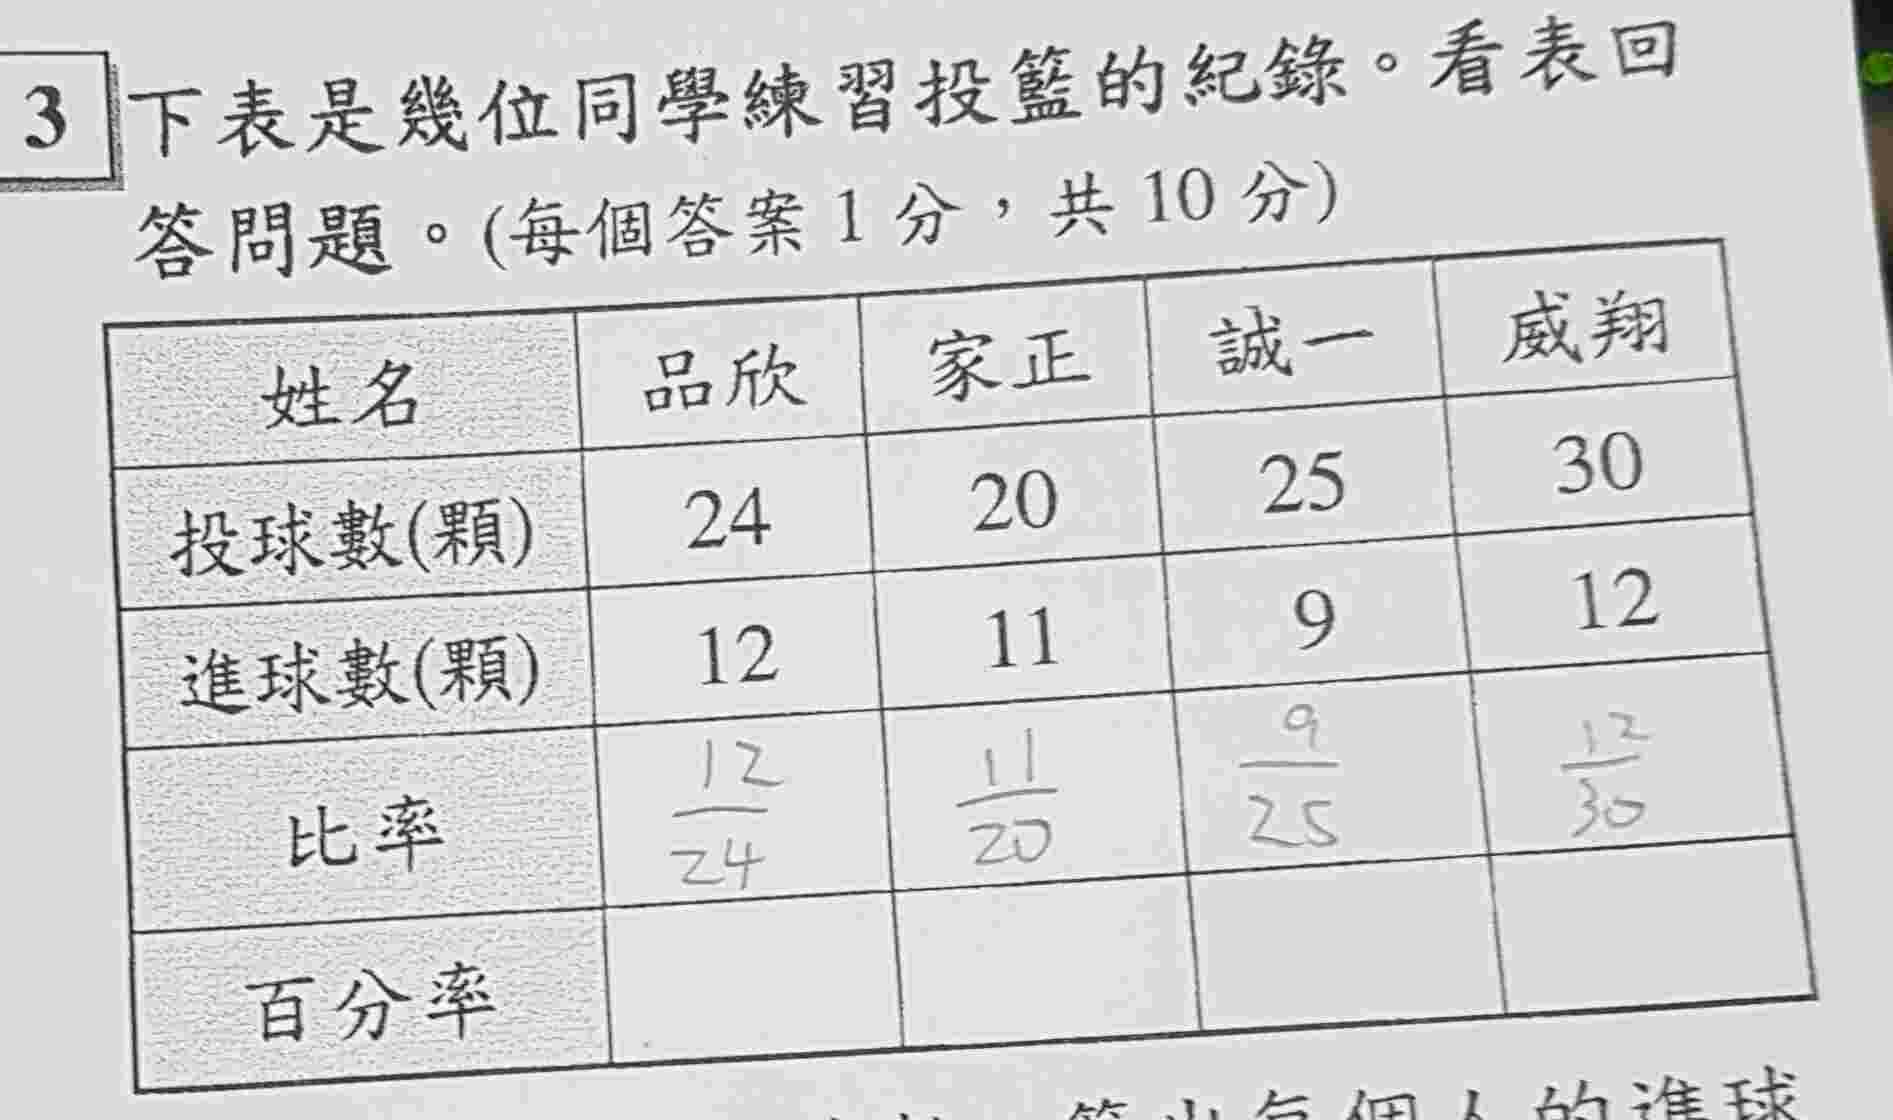 3 下表是幾位同學練習投籃的紀錄。看表回
答問題。(每個答案 1 分，共 10 分)
姓名 品欣 家正 誠一 威翔
投球數(顆) 24 20 25 30
進球數(顆) 12 11 9 12
比率 12/24 11/20 9/25 12/30
百分率
算出每個人的進球